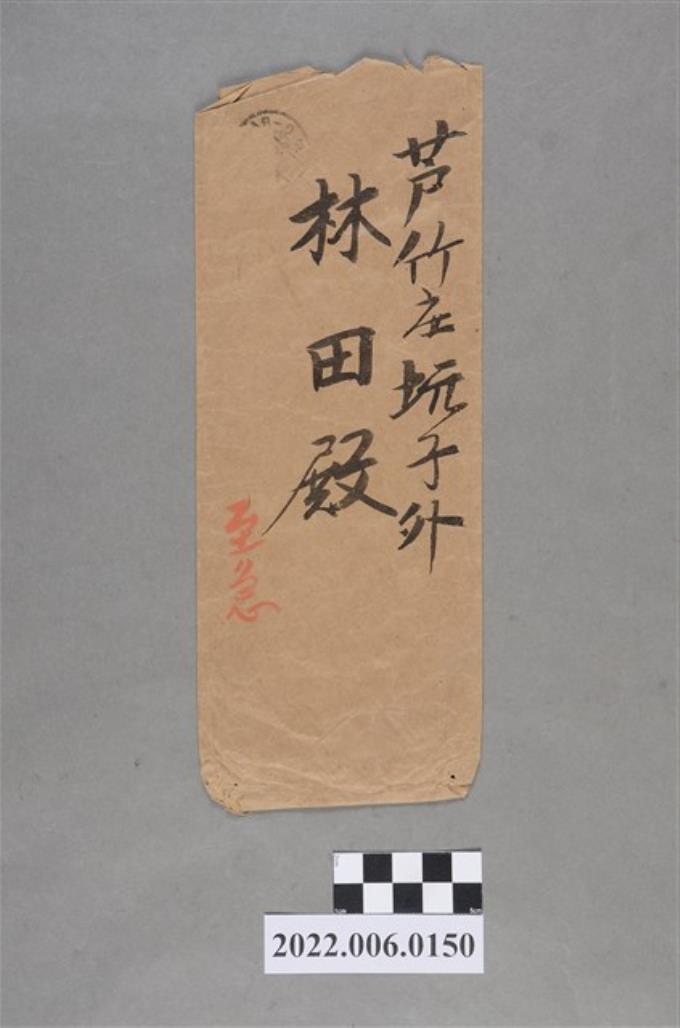 芦竹庄坑子外
林田殿
至急
2022.006.0150